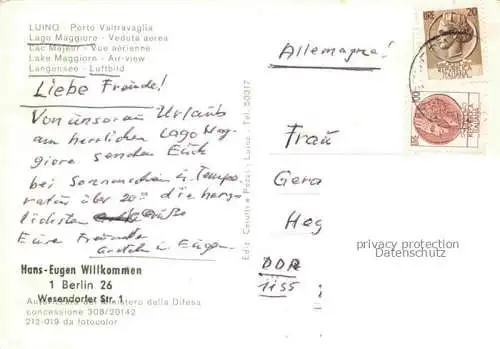 LUINO - Porto Valtravaglia
Lago Maggiore - Veduta aerea
Lac Majeur - Vue aérienne
Lake Maggiore - Air-view
Langensee - Luftbild
Liebe Freunde!
Von unserem Urlaub
am herrlichen Lago Mag-
giore senden Euch
bei Sonnenschein u. Tempe-
ratur über 20° die herz-
lichsten Grüße
Eure Freunde
u. Eugen
Hans-Eugen Willkommen
1 Berlin 26
Wesendorfer Str. 1
Autorizzata dal Ministero della Difesa
concessione 308/20142
212-019 da fotocolor
Ediz. Cerutti e Pozzi - Luino - Tel. 50317
Allemagna!
LIRE 20
REPUBBLICA
ITALIANA
Frau
Gera
Heg
DDR
1155
privacy protection
Datenschutz